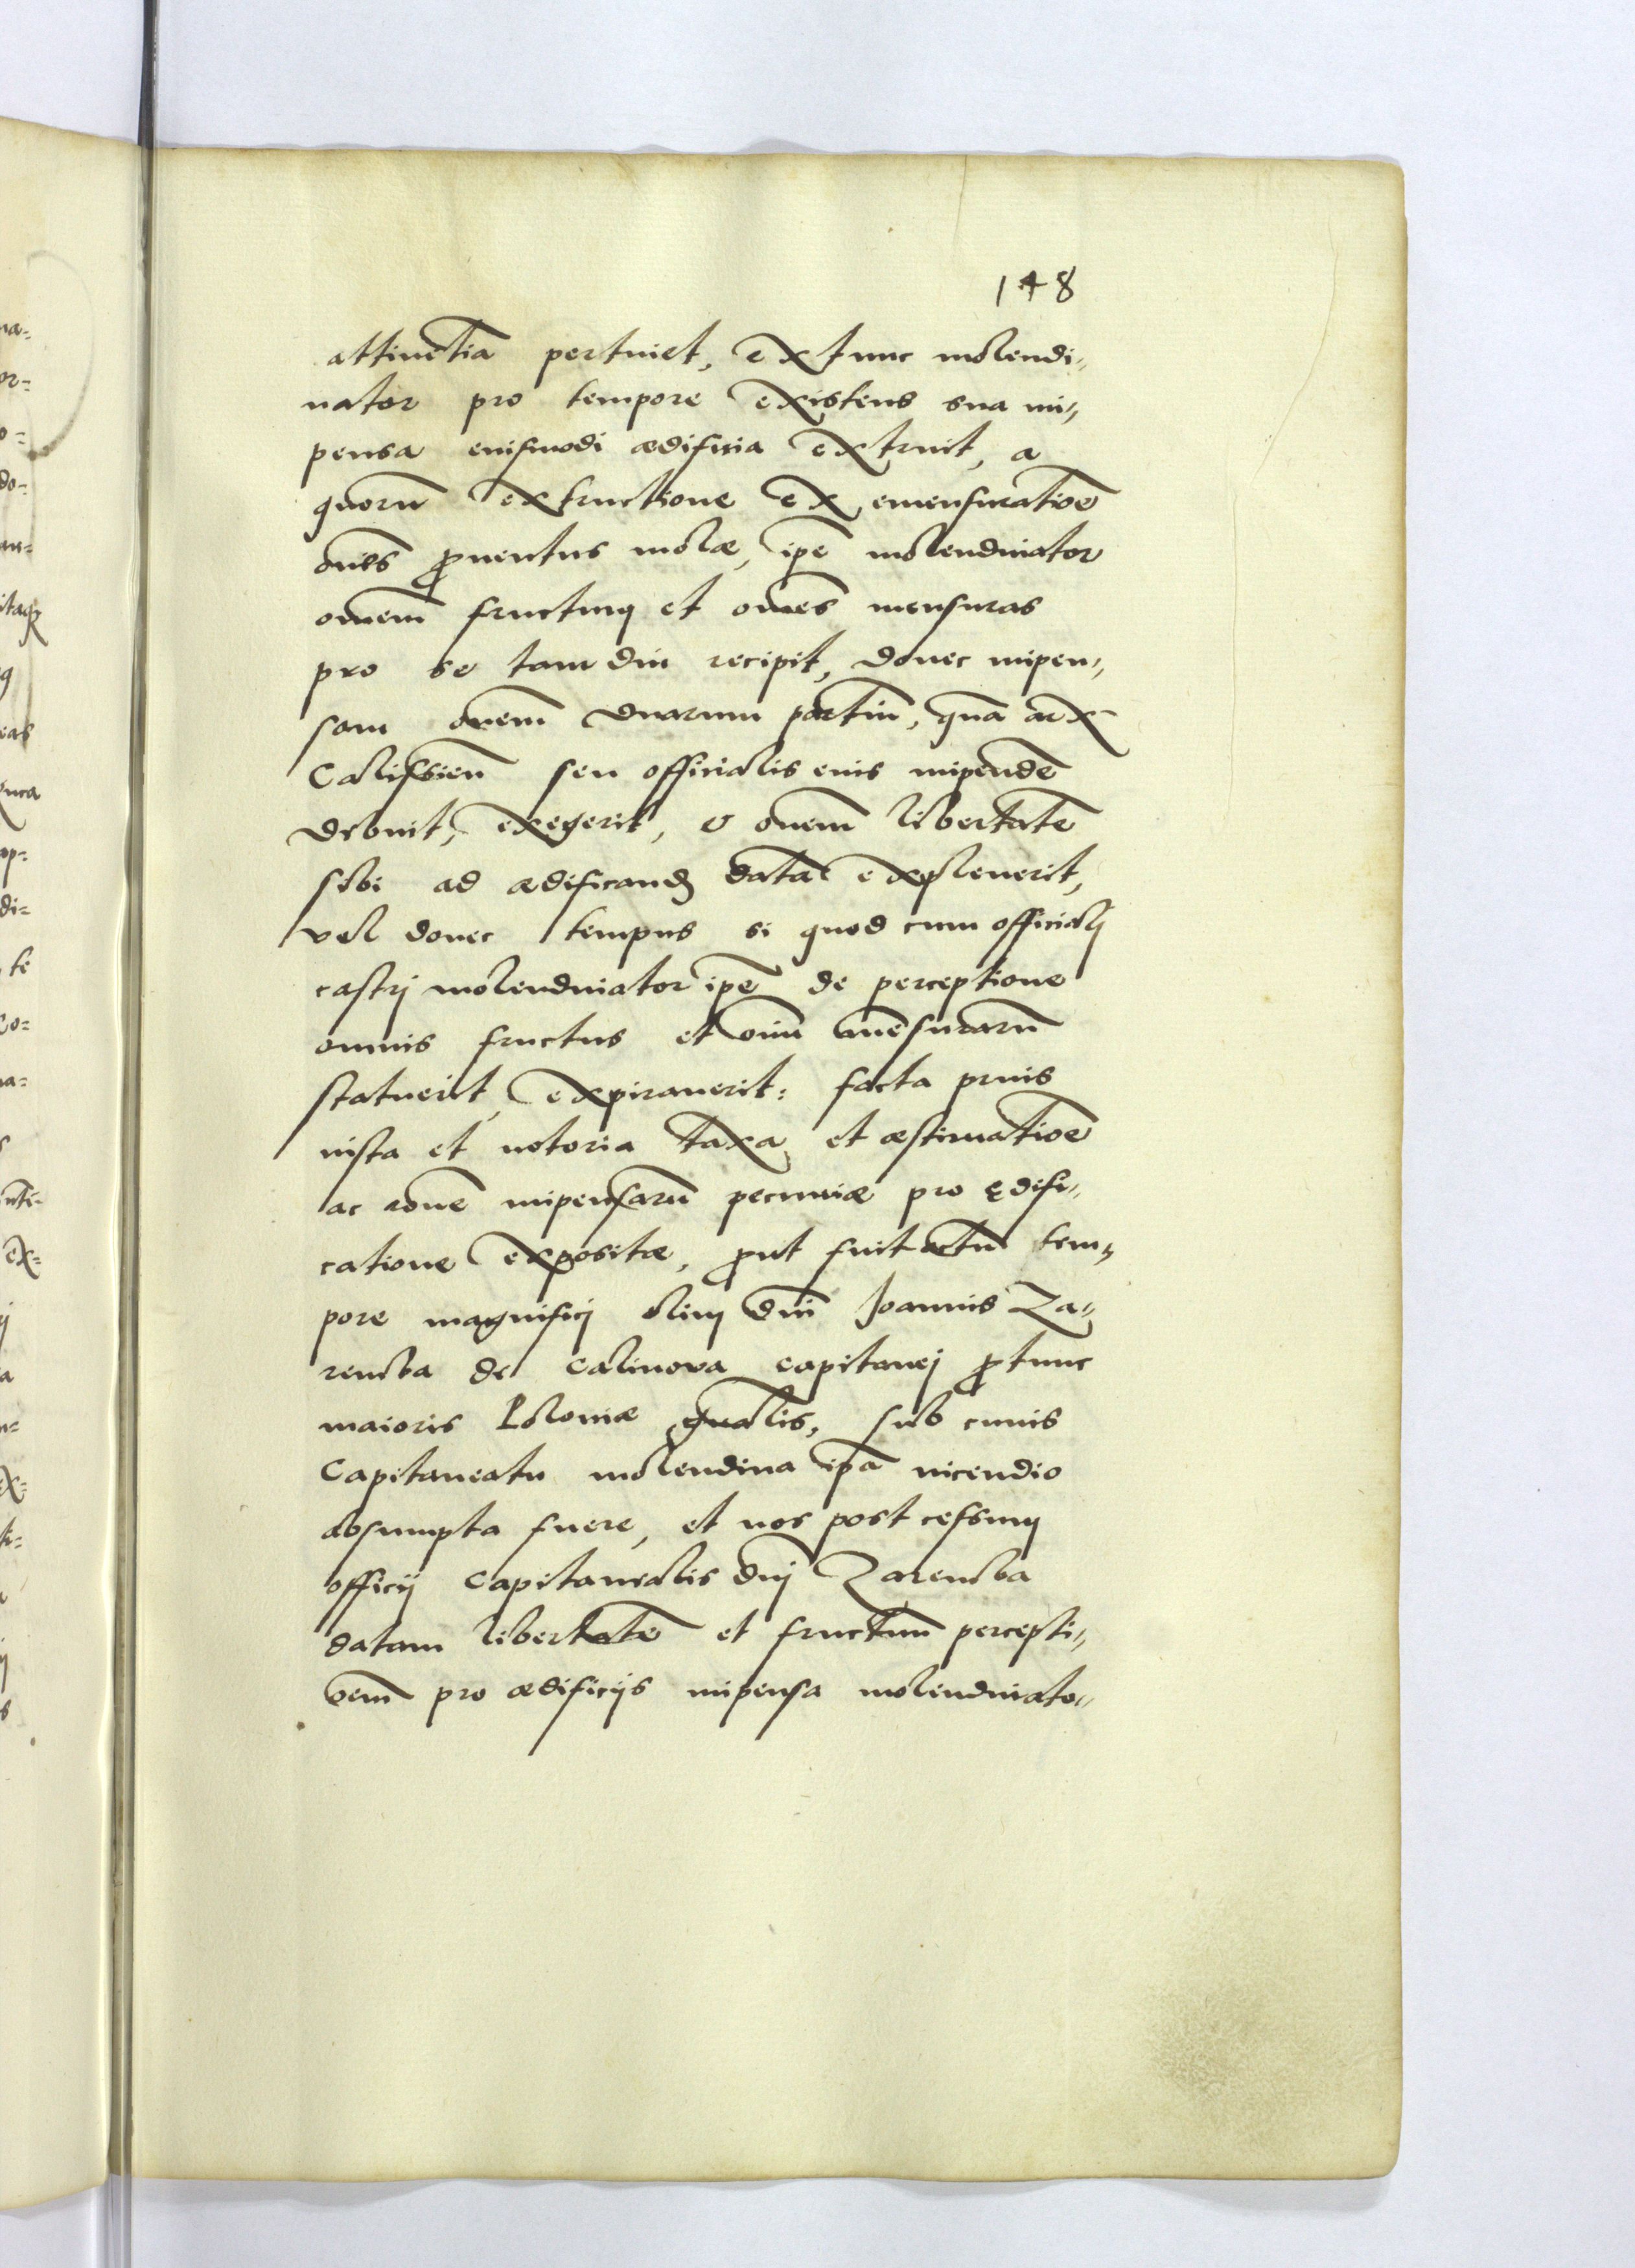 148
attinētia pertinet, extunc molendi„
nator pro tempore existens sua im„
pensa eiusmodi ædificia extruit, a
quorū extructione ex emensuratiōe
ōnēs prouentus molæ, ip̄e molendinator
om̄em fructum et om̄es mensuras
pro se tamdiu recipit, donec impen„
sam om̄em duarum partiū, quā arx
Calissien̄ seu officialis eius impendē
debuit, exegerit, & om̄em libertatē
sibi ad ædificand datā expleuerit,
vel donec tempus si quod cum officiali
castri molendinator ip̄e de perceptione
omnis fructus et om̄iū mēsurarū
statuerit, expirauerit: facta prius
iusta et notoria taxa et æstimatiōe
ac rōne impensarū pecuniæ pro ędifi„
catione expositæ, prout fuit actū tem„
pore magnifici olim Dn̄i Joannis Za„
remba de Calinova capitanei protunc
maioris Poloniæ gn̄alis, sub cuius
Capitaneatu molendina ip̄a incendio
absumpta fuere, et nos post cessum
officij Capitanealis Dn̄i Zaremba
datam libertatē et fructuum percepti„
ōem pro ædificijs impensa molendinato„